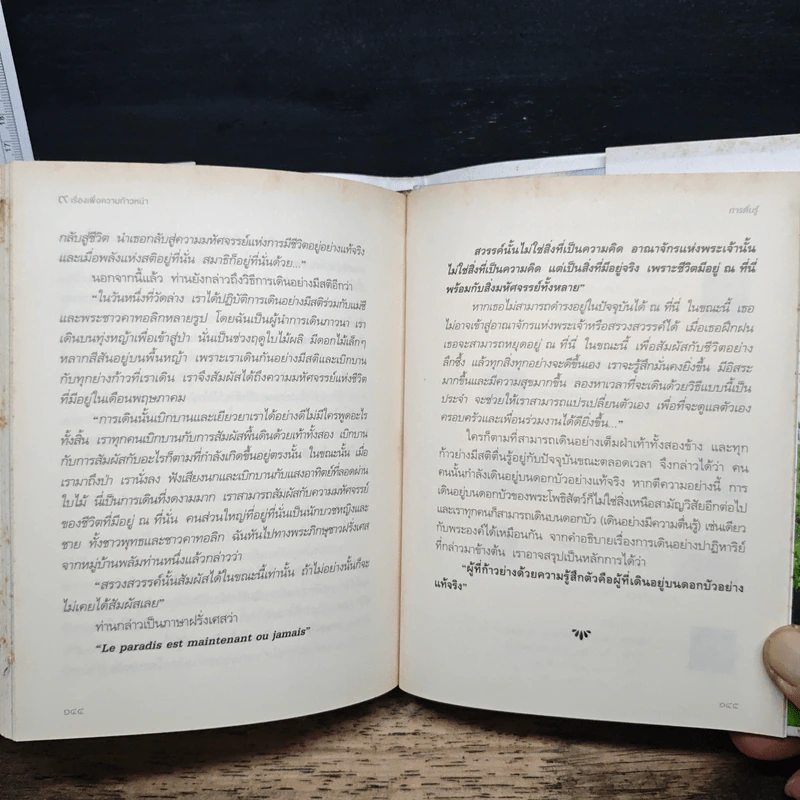 ๗ เรื่องเพื่อความก้าวหน้า
กลับสู่ชีวิต นำเธอกลับสู่ความมหัศจรรย์แห่งการมีชีวิตอยู่อย่างแท้จริง
และเมื่อพลังแห่งสติอยู่ที่นั่น สมาธิก็อยู่ที่นั่นด้วย..."
นอกจากนี้แล้ว ท่านยังกล่าวถึงวิธีการเดินอย่างมีสติอีกว่า
"ในวันหนึ่งที่วัดล่าง เราได้ปฏิบัติการเดินอย่างมีสติร่วมกับแม่ชี
และพระชาวคาทอลิกหลายรูป โดยฉันเป็นผู้นำการเดินภาวนา เรา
เดินบนทุ่งหญ้าเพื่อเข้าสู่ป่า นั่นเป็นช่วงฤดูใบไม้ผลิ มีดอกไม้เล็กๆ
หลากสีสันอยู่บนพื้นหญ้า เพราะเราเดินกันอย่างมีสติและเบิกบาน
กับทุกย่างก้าวที่เราเดิน เราจึงสัมผัสได้ถึงความมหัศจรรย์แห่งชีวิต
ที่มีอยู่ในเดือนพฤษภาคม
"การเดินนั้นเบิกบานและเยียวยาเราได้อย่างดีไม่มีใครพูดอะไร
ทั้งสิ้น เราทุกคนเบิกบานกับการสัมผัสพื้นดินด้วยเท้าทั้งสอง เบิกบาน
กับการสัมผัสกับอะไรก็ตามที่กำลังเกิดขึ้นอยู่ตรงนั้น ในขณะนั้น เมื่อ
เรามาถึงป่า เรานั่งลง ฟังเสียงนกและเบิกบานกับแสงอาทิตย์ที่ลอดผ่าน
ใบไม้ นี่เป็นการเดินที่งดงามมาก เราสามารถสัมผัสกับความมหัศจรรย์
ของชีวิตที่มีอยู่ ณ ที่นั่น คนส่วนใหญ่ที่อยู่ที่นั่นเป็นนักบวชหญิงและ
ชาย ทั้งชาวพุทธและชาวคาทอลิก ฉันหันไปทางพระภิกษุชาวฝรั่งเศส
จากหมู่บ้านพลัมท่านหนึ่งแล้วกล่าวว่า
"สรวงสวรรค์นั้นสัมผัสได้ในขณะนี้เท่านั้น ถ้าไม่อย่างนั้นก็จะ
ไม่เคยได้สัมผัสเลย"
ท่านกล่าวเป็นภาษาฝรั่งเศสว่า
"Le paradis est maintenant ou jamais"
๑๔๔
การตื่นรู้
สวรรค์นั้นไม่ใช่สิ่งที่เป็นความคิด อาณาจักรแห่งพระเจ้านั้น
ไม่ใช่สิ่งที่เป็นความคิด แต่เป็นสิ่งที่มีอยู่จริง เพราะชีวิตมีอยู่ ณ ที่นี่
พร้อมกับสิ่งมหัศจรรย์ทั้งหลาย"
หากเธอไม่สามารถดำรงอยู่ในปัจจุบันได้ ณ ที่นี่ ในขณะนี้ เธอ
ไม่อาจเข้าสู่อาณาจักรแห่งพระเจ้าหรือสรวงสวรรค์ได้ เมื่อเธอฝึกฝน
เธอจะสามารถหยุดอยู่ ณ ที่นี่ ในขณะนี้ เพื่อสัมผัสกับชีวิตอย่าง
ลึกซึ้ง แล้วทุกสิ่งทุกอย่างจะดีขึ้นเอง เราจะรู้สึกมั่นคงยิ่งขึ้น มีอิสระ
มากขึ้นและมีความสุขมากขึ้น ลองหาเวลาที่จะเดินด้วยวิธีแบบนี้เป็น
ประจำ จะช่วยให้เราสามารถแปรเปลี่ยนตัวเอง เพื่อที่จะดูแลตัวเอง
ครอบครัวและเพื่อนร่วมงานได้ดียิ่งขึ้น..."
ใครก็ตามที่สามารถเดินอย่างเต็มฝ่าเท้าทั้งสองข้าง และทุก
ก้าวย่างมีสติตื่นรู้อยู่กับปัจจุบันขณะตลอดเวลา จึงกล่าวได้ว่า คน
คนนั้นกำลังเดินอยู่บนดอกบัวอย่างแท้จริง หากตีความอย่างนี้ การ
เดินอยู่บนดอกบัวของพระโพธิสัตว์ก็ไม่ใช่สิ่งเหนือสามัญวิสัยอีกต่อไป
และเราทุกคนก็สามารถเดินบนดอกบัว (เดินอย่างมีความตื่นรู้) เช่นเดียว
กับพระองค์ได้เหมือนกัน จากคำอธิบายเรื่องการเดินอย่างปาฏิหาริย์
ที่กล่าวมาข้างต้น เราอาจสรุปเป็นหลักการได้ว่า
"ผู้ที่ก้าวย่างด้วยความรู้สึกตัวคือผู้ที่เดินอยู่บนดอกบัวอย่าง
แท้จริง"
๑๔๕